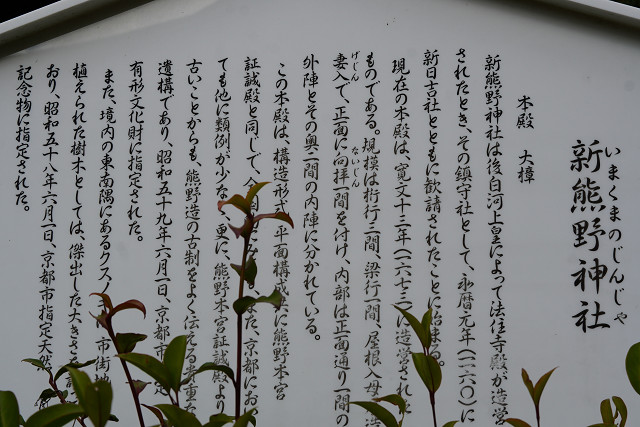 いまくまのじんじゃ
新熊野神社
本殿 大樟
新熊野神社は後白河上皇によって法住寺殿が造営
されたとき、その鎮守社として、永暦元年(一一六〇)に
新日吉社とともに勧請されたことに始まる。
現在の本殿は、寛文十三年(一六七三)に造営された
ものである。規模は桁行三間、梁行一間、屋根入母
妻入で、正面に向拝一間を付け、内部は正面通り一間の
げじん
外陣とその奥一間の内陣に分かれている。
ないじん
この本殿は、構造形式、平面構成共に熊野本宮
証誠殿と同じで、
また、京都にお
ても他に類例が少な
更に、熊野本宮証誠殿より
古いことからも、熊野造の古制をよく伝える貴重
遺構であり、昭和五十九年六月一日、京都市
有形文化財に指定された。
また、境内の東南隅にあるクスノ
市街
植えられた樹木としては、傑出した大きさ
おり、昭和五十八年六月一日、京都市指定天然
記念物に指定された。